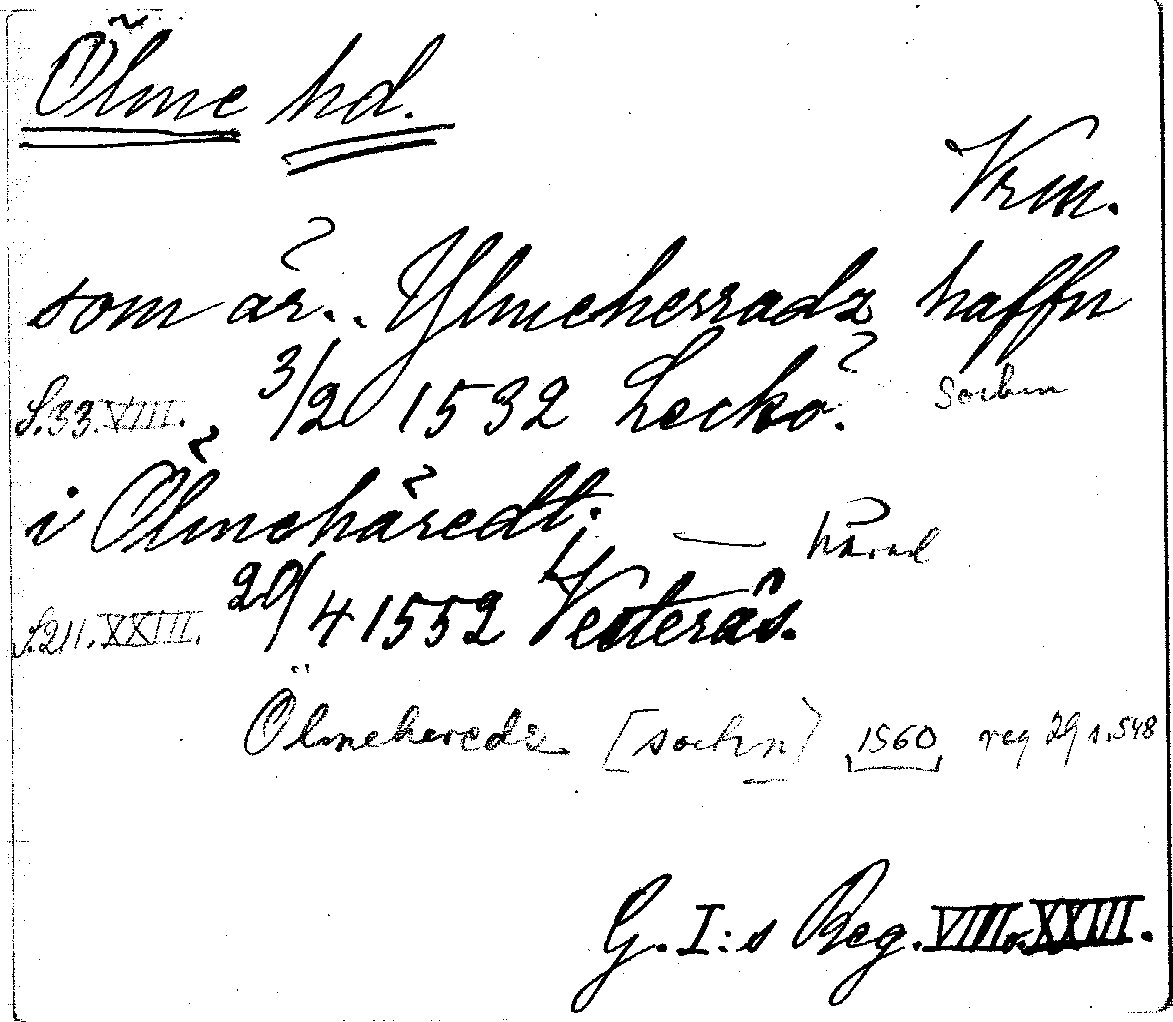 Ölme hd.
Vrm.
som är.. Ylmeherradz haffn
S.33.VIII. 3/2 1532 Leckö. sochn
i Ölmehäredt; — härad
S.211.XXIII. 20/4 1552 Vesterås.
Ölmeheredz [sochn] 1560 reg 29 s.548
G. I:s Reg. VIII o. XXIII.